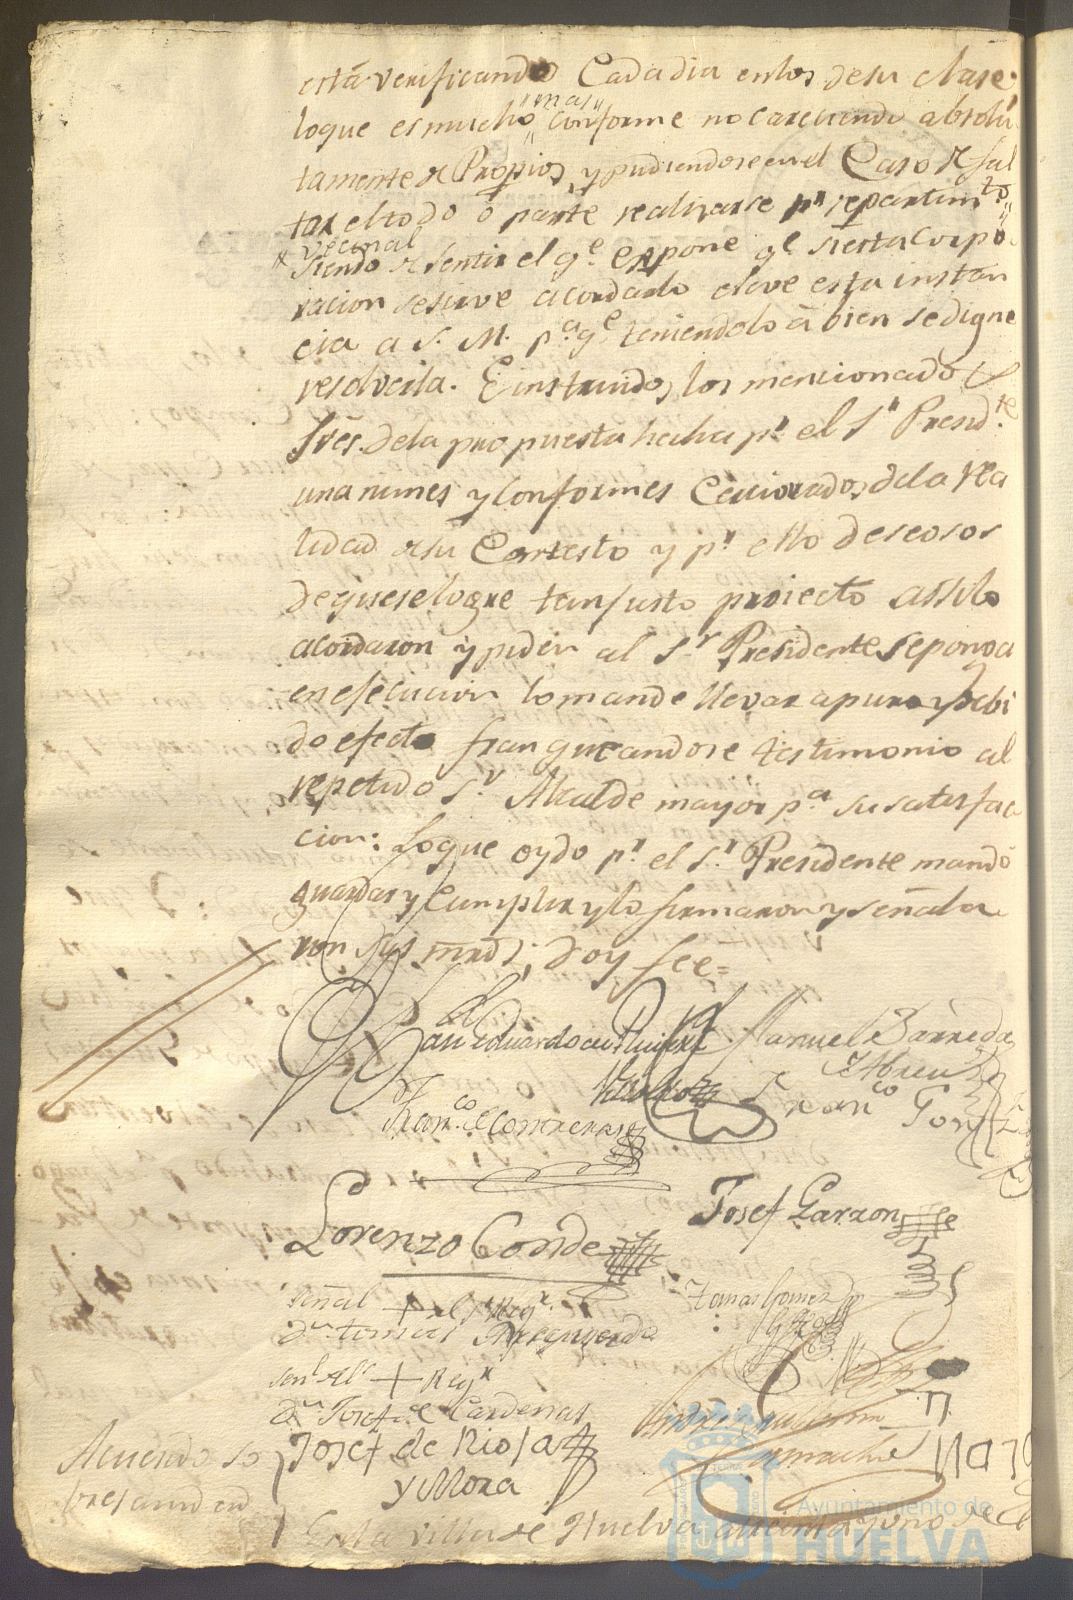 está verificando Cada dia enlos desu clase
loque esmucho "mas" conforme no careciendo absolu
tamente de Propios, y pudiendose en el Caso de fal
tar eltodo ó parte realizarse pr. repartimto.
* vecinal
siendo de sentir el qe. expone qe. si esta Corpo
racion sesirve acordarlo eleve esta instan
cia a S. M. pa. qe. teniendolo á bien sedigne
resolverla. E instruidos los mencionados
Sres. dela propuesta hecha pr. el Sr. Presidte.
unanimes y conformes Cerciorados dela rea
lidad desu Contesto y pr. ello deseosos
dequeselogre tanjusto proiecto assilo
acordaron y piden al Sr. Presidente seponga
enejecucion lo mande llevar apuro y debi
do efecto franqueandose testimonio al
repetido Sr. Alcalde mayor pa. su satisfac
cion: Loque oydo pr. el Sr. Presidente mandó
guardar y Cumplir ylo firmaron y señala
ron sus mrds; doy fee=
Juan Eduardo
Manuel Barreda
y Abreu
Franco. de Contreras
Franco. Gonz
Josef Garzon
Lorenzo Conde
señal + del Sr. Regr.
Dn. tomas
Tomas Gomez
señl. del + Regr.
Dn. Josef de Cardenas
Josef de Rioja
y Mora
Camacho
Acuerdo so
bre
En la Villa de Huelva a treinta y uno de
Ayuntamiento de
HUELVA